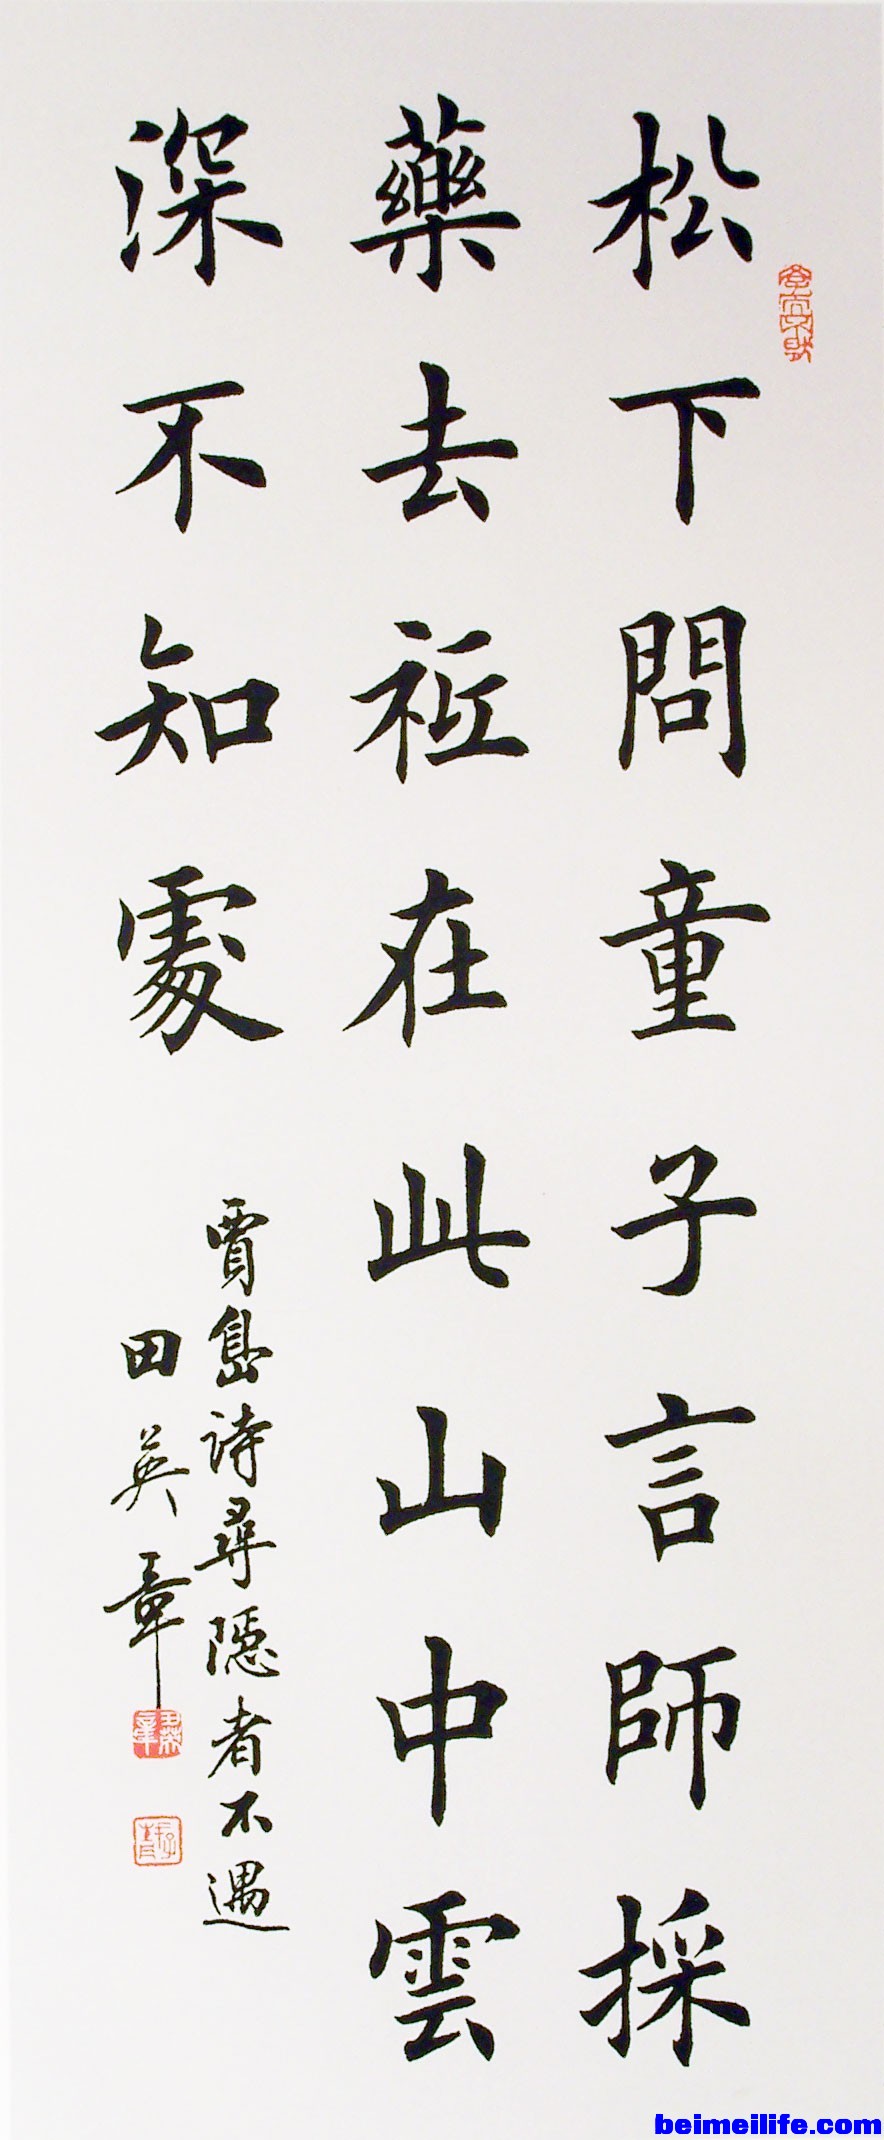 松下問童子言師採
藥去祗在此山中雲
深不知處
賈島詩尋隱者不遇
田英章
beimeilife.com